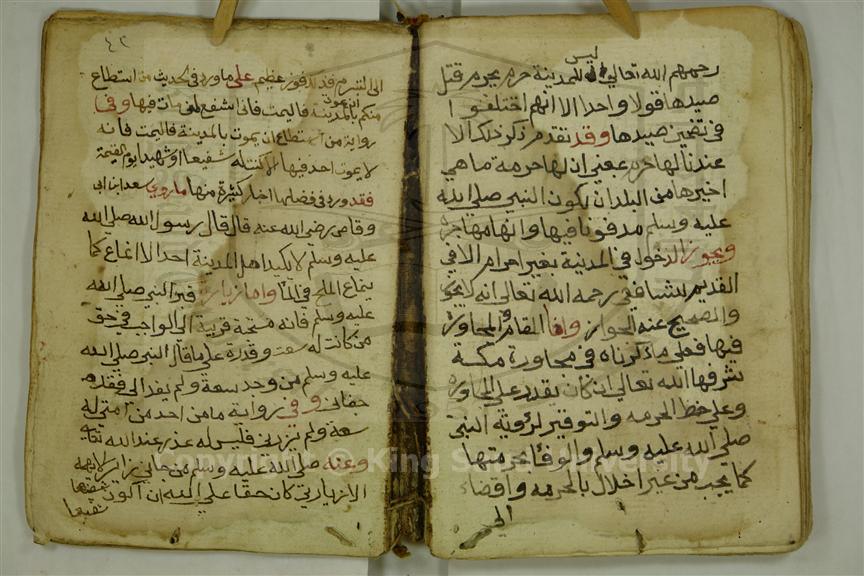 ليس
رحمهم الله تعالى للمدينة حرم يحرم قتل
صيدها قولا واحدا الا انهم اختلفوا
في تضمين صيدها وقد تقدم ذكر ذلك الا
عندنا لها حرم بمعنى ان لها حرمة ما هي
اخيرها من البلدان يكون النبي صلى الله
عليه وسلم مدفونا فيها وانها مهاجره
ويجوز الدخول في المدينة بغير احرام الا في
القديم للشافعي رحمه الله تعالى انه لا يجوز
والصحيح عنه الجواز واما المقام والمجاورة
فيها فعلى ما ذكرناه في مجاورة مكة
شرفها الله تعالى ان كان يقدر على المجاورة
وعلى حفظ الحرمه والتوقير لرؤية النبي
صلى الله عليه وسلم والوفا بحرمتها
كما يجب من غير اخلال بالحرمه وافضاء
الى
٤٢
الى التبرم فذلك فوز عظيم على ما ورد في الحديث من استطاع
منكم ان يموت بالمدينة فاليمت فاني اشفع لمن مات فيها وفي
رواية من استطاع ان يموت بالمدينة فاليمت فانه
لا يموت احد فيها الا كنت له شفيعا او شهيدا يوم القيمة
فقد ورد في فضلها اخبار كثيرة منها ما روي سعد ابن ابي
وقاص رضي الله عنه قال قال رسول الله صلى الله
عليه وسلم لا يكيد اهل المدينة احد الا انماع كما
ينماع الملح في الما واما زيارة قبر النبي صلى الله
عليه وسلم فانه مستحبة قريبة الى الواجب في حق
من كانت له سعة وقدرة على ما قال النبي صلى الله
عليه وسلم من وجد سعة ولم يفد الي فقد
جفاني وفي رواية ما من احد من امتي له
سعة ولم يزرني فليس له عذر عند الله تعالى
وعنه صلى الله عليه وسلم من جاني زائرا لا يهمه
الا زيارتي كان حقا على الله ان اكون
شفيعا